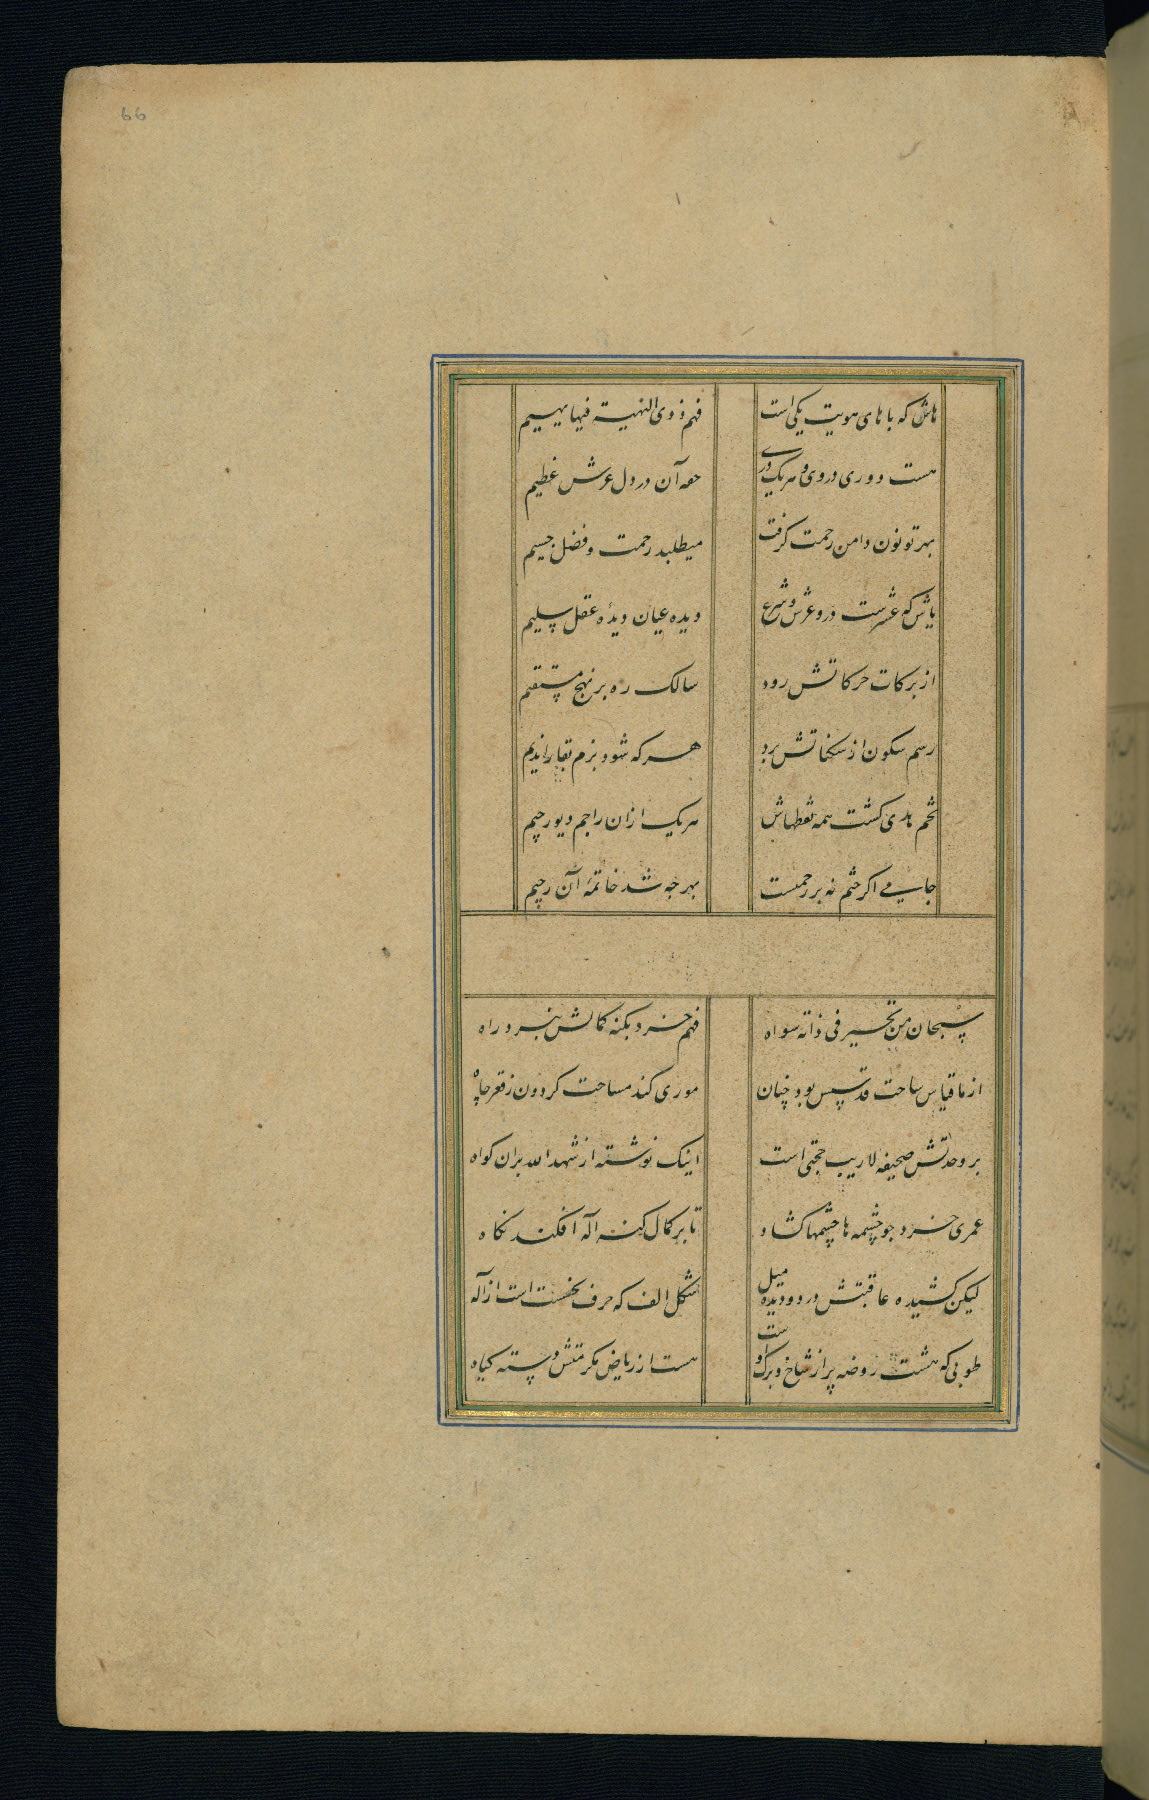 66
هاش که با های هویت یکی است
فهم ذوی النهیة فیها یهیم
هست دوری در وی و هر یک دری
حقه آن در دل عرش عظیم
بهر تو نون دامن رحمت گرفت
میطلبد رحمت و فضل جسیم
یاش که عشرست درو عرش و شرع
دیده عیان دیدهٔ عقل سلیم
از برکات حرکاتش رود
سالک ره بر نهج مستقیم
رسم سکون از سکناتش برد
هر که شود بزم بقا را ندیم
نجم هدی گشت همه نقطهاش
هر یک ازان راجم دیو رجیم
جامی اگر ختم نه بر رحمتست
بهر چه شد خاتمهٔ آن رحیم
سبحان من تحیر فی ذاته سواه
فهم خرد بکنه کمالش نبرد راه
از ما قیاس ساحت قدسش بود چنان
موری کند مساحت کردون ز قعر چاه
بر وحدتش صحیفه لاریب حجتی است
اینک نوشته از شهد الله بران کواه
عمری خرد چو چشمه ها چشمها کشاد
تا بر کمال کنه اله افکند نکاه
لیکن کشیده عاقبتش در دو دیده میل
شکل الف که حرف نخست است از اله
طوبی که هشت روضه پر از شاخ و برک اوست
هست از ریاض مکرمتش دسته کیاه